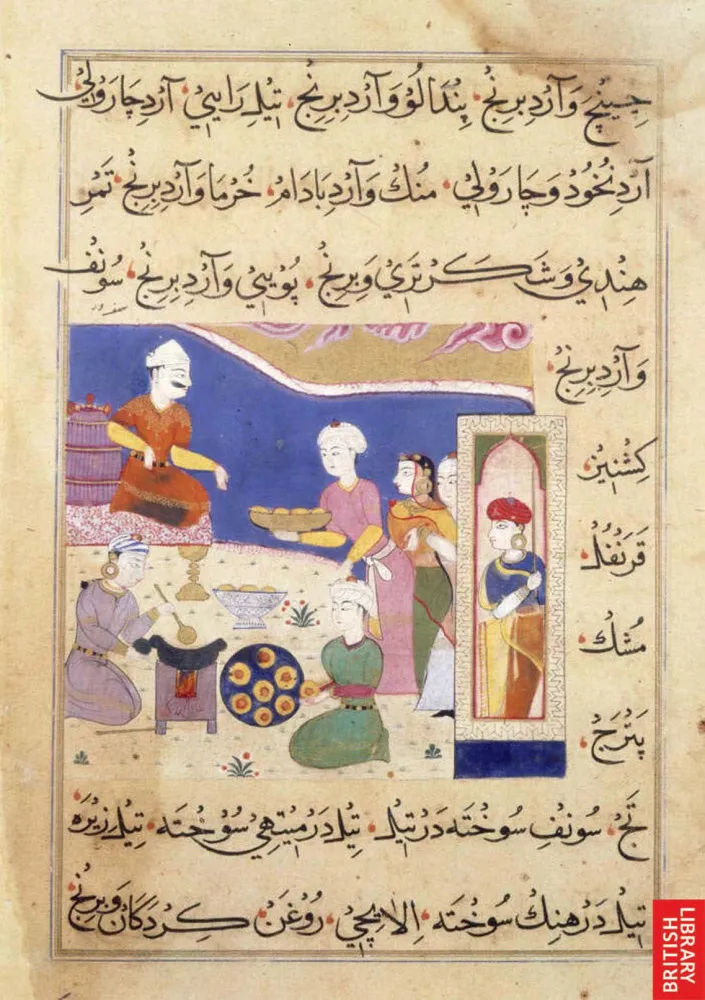 چینچ وَآردِ بِرِنْج، پِنْدَالُوْ وَآردِ بِرِنْج، تِیلِ رَایِیْ، آردِ چَارَوْلِیْ
آردِ نَخُوْد وَچَارَوْلِیْ، مُنْك وَآردِ بَادَام، خُرْمَا وَآردِ بِرِنْج، تَمْرِ
هِنْدِيْ وَشَکَرْتَرِيْ وَبِرِنْج، پُوْیِيْ وَآردِ بِرِنْج، سُوْنْف
وَآردِ بِرِنْج،
کِشْنِیْز،
قَرَنْفُل،
مُشْك،
پَتْرَج،
تَج، سُونْفِ سُوخْتَه دَرْ تِیل، تِیلْ دَرْ مِیْتهِیْ سُوْخْتَه، تِیلِ زِیْرَه
تِیلْ دَرْ هِنْك سُوْخْتَه، اِلَایَچِيْ، رُوْغَنْ، کِردَکَان وَبِرِنْج
BRITISH
LIBRARY